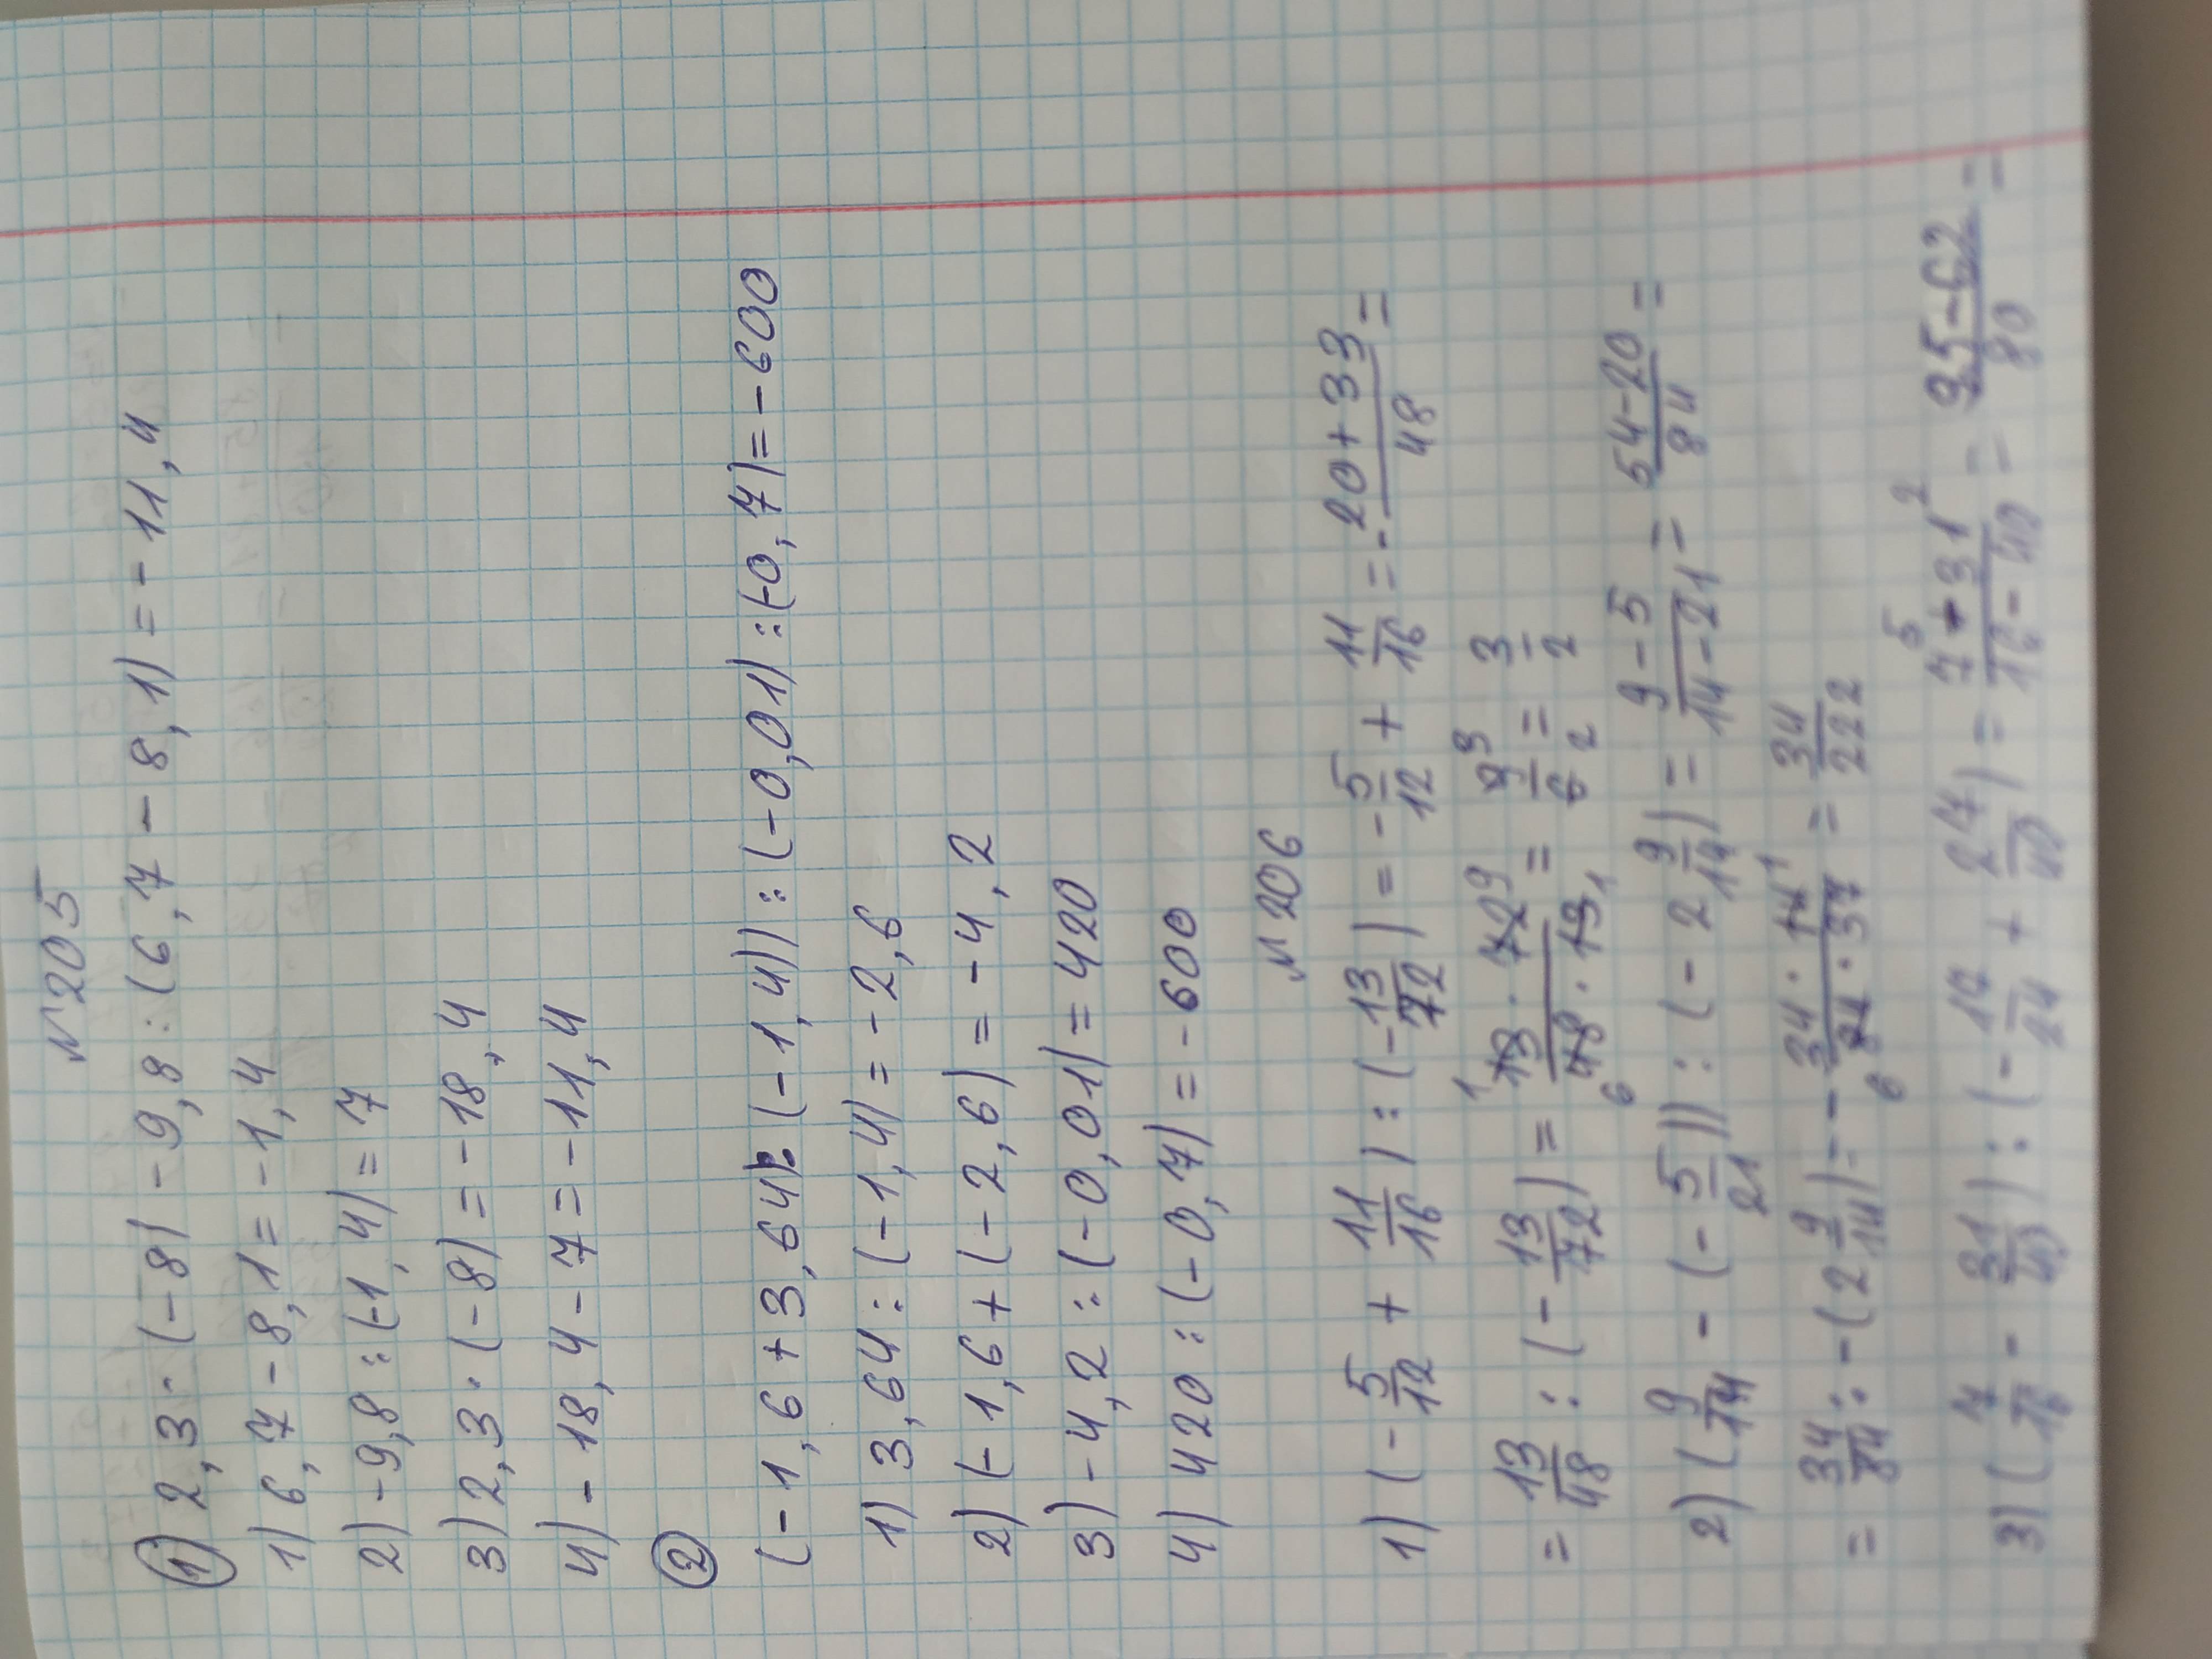 №205
1) 2,3·(-8)-9,8:(6,7-8,1)=-11,4
1) 6,7-8,1=-1,4
2) -9,8:(-1,4)=7
3) 2,3·(-8)=-18,4
4) -18,4-7=-11,4
2
(-1,6+3,64:(-1,4)):(-0,01):(-0,7)=-600
1) 3,64:(-1,4)=-2,6
2) (-1,6+(-2,6)=-4,2
3) -4,2:(-0,01)=420
4) 420:(-0,7)=-600
№206
1) (-5/12+11/16):(-13/72)=-5/12+11/16=-20+33/48=
=13/48:(-13/72)=13·72/48·13=9/6=3/2
2) (9/14-(-5/21)):(-2 9/14)=9-5/14-21=54-20/84=
=34/84:-(2 9/14)=-34·14/84·37=34/222
3) (7/16-31/40):(-17/24+27/40)=7+31/16-40=35-62/80=